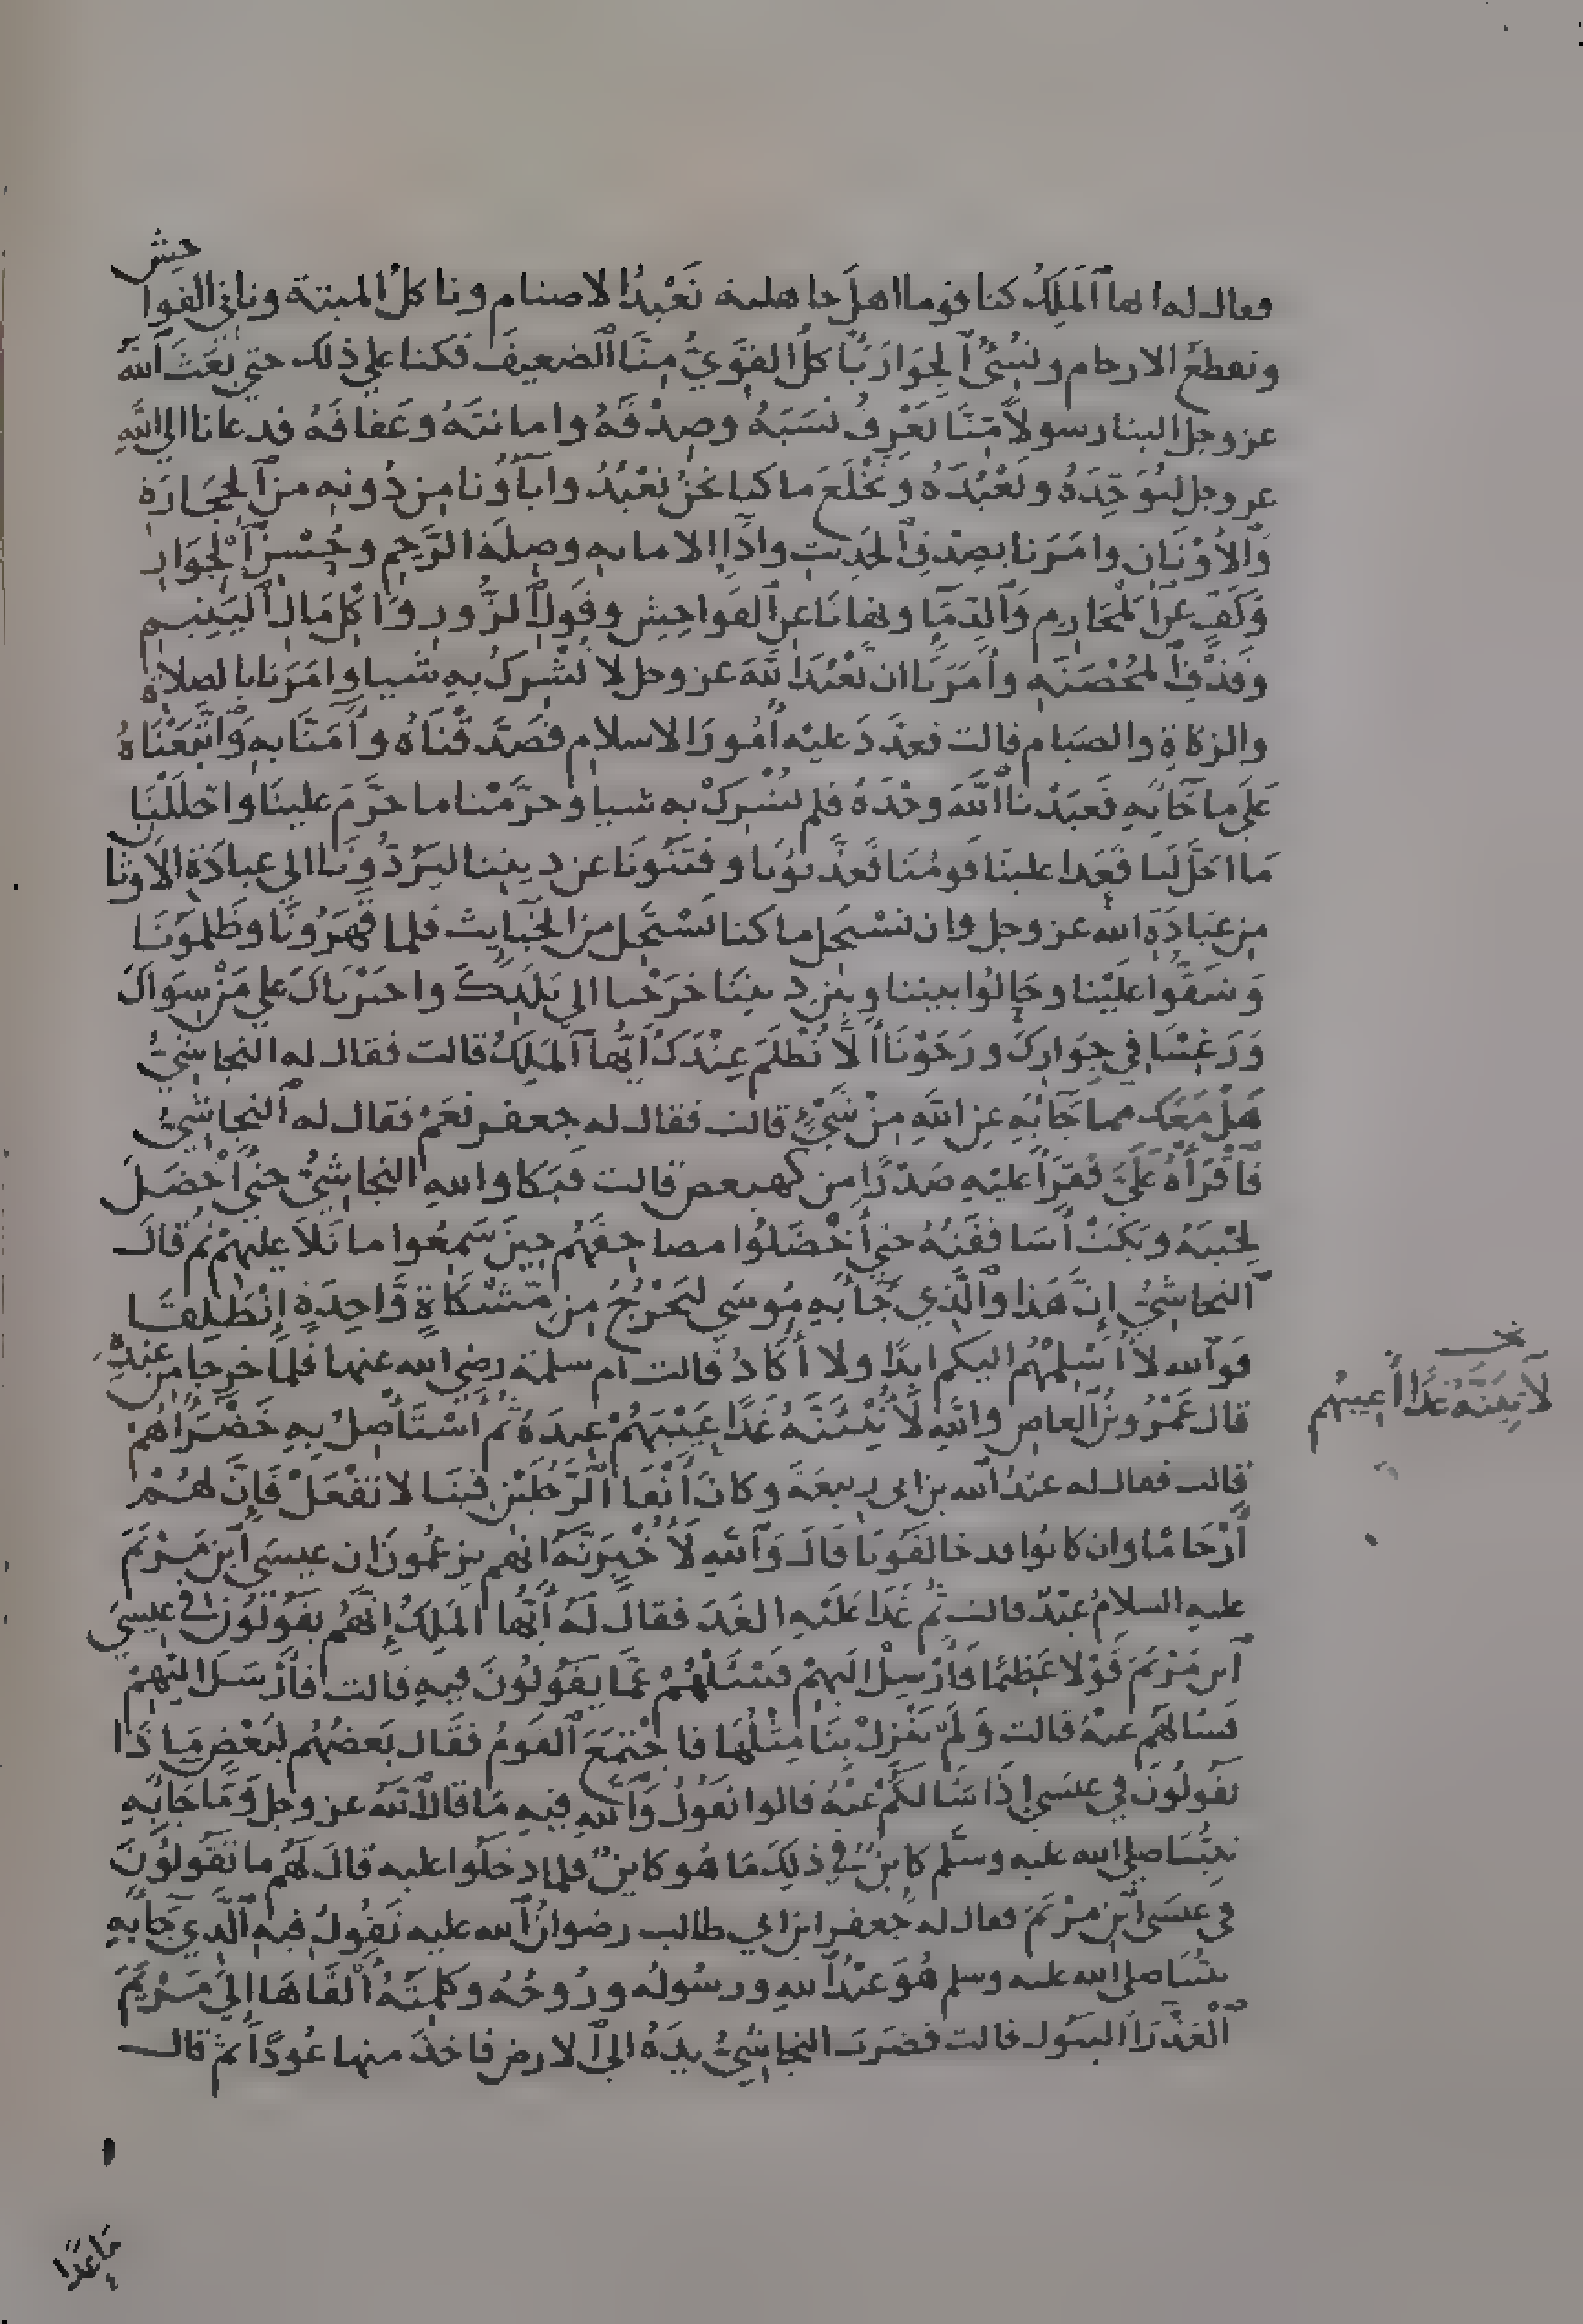 فقال له ايها ٱلمَلِكُ كنا قوما اهلَ جاهلية نَعْبُدُ الاصنام وناكلُ الميتة وناتي الفواحِش
ونقطعُ الارحام ونُسِئُ ٱلجِوَارَ يَأكلُ القَوِيُّ مِنَّا ٱلضعيفَ فكنا علي ذلك حتي بَعَثَ ٱللهُ
عز وجل الينا رسولاً مِّنَّا نَعْرِفُ نَسَبَهُ وصِدْقَهُ وامانتَهُ وعَفافَهُ فدعانا الي اللَّهِ
عز وجل لنُوَحِّدَهُ ونَعْبُدَهُ ونَخْلَعَ ما كنا نحنُ نَعْبُدُ وآبآؤُنا مِن دُونِهِ من ٱلحِجَارَةِ
وَٱلأوْثَانِ وامَرَنا بصِدْقِ ٱلحَدِيثِ وادَآءِ الامانه وصِلَة الرَّحِمِ وحُسْنِ ٱلْجِوَارِ
وَكَفٍّ عن ٱلمَحَارِمِ وَٱلدِّمَآءِ ونهانَا عن ٱلفَوَاحِشِ وقَوْلِ ٱلزُّورِ وَاكْلِ مَالِ ٱليَتِيمِ
وَقَذْفِ ٱلمُحْصَنَهِ وأمَرَنا ان نَّعْبُدَ اللّهَ عز وجل لا نُشْرِكُ بهِ شيا وامَرَنا بالصلاةِ
والزكاةِ والصيام قالت فعدَّدَ عليه أمُورَ الاسلام فصَدَّقْنَاهُ وآمَنَّا بهِ وَٱتَّبَعْنَاهُ
عَلَي ما جَآ بِهِ فَعَبَدْنا ٱللَّهَ وحْدَهُ فلم نُشْرِكْ به شيا وحرَّمْنا ما حرَّمَ علينَا وأحْلَلْنَا
مَا احَلَّ لنا فَعَدا علينَا قومُنَا فعَذَّبُونَا وفَتَنُونَا عن ديننا ليَرُدُّونَا الي عبادَةِ الأوثا
مِن عِبَادَةِ الله عز وجل وان نسْتَحِل ما كنا نَسْتَحِل من الخبَايِث فلما قَهَرُونَا وظَلمونَا
وَشَقُّوا علَيْنا وحَالُوا بيننا وبين دِيننَا خرَجْنا الي بَلَدِكَ واخترْنَاكَ علي مَنْ سِوَاكَ
وَرَغِبْنَا في جِوَارِكَ ورَجَوْنَا ألاَّ نُظْلَمَ عِنْدَكَ أَيُّها ٱلمَلِكُ قالت فقال له النجاشِيُّ
هَلْ مَعَكَ مما جَآ بِهِ عن اللَّهِ مِنْ شَيْءٍ قالت فقال له جعفر نَعَمْ فقال له ٱلنجاشِيُّ
فَٱقْرَأهُ عَلَيَّ فقَرَأ عليْهِ صَدْرًا مِن كهيعص قالت فَبَكا واللهِ النجاشِيُّ حَتي أخْضَلَ
لِحْيَتَهُ وبَكَتْ أسَاقفَتُهُ حَتي أخْضَلُوا مصاحِفَهُم حِينَ سَمِعُوا ما تَلاَ عليهِمْ ثُمَّ قالَ
ٱلنجاشِيُّ إِنَّ هَذا وٱلَّذِي جَآ بِهِ مُوسَي لَيَخْرُجُ مِن مِّشْكاةٍ وَّاحِدَةٍ إِنْطَلِقَا
فَوَٱلله لاَ اسْلِمُهُم اليكم ابدًا ولا أكادُ قالت ام سلمة رضي الله عنها فلما خرجا من عِنْدِهِ
قال عَمْرُو بنُ ٱلعاصِ واللَّهِ لأُنَبِّئَنَّهُ غَدًا عَيْبَهُمْ عِندَهُ ثم أسْتَأصِلُ بِهِ خَضْرَاءَهُمْ
قالت فقال له عبْدُ ٱلله بن ابي ربيعَةَ وكانَ أتْقَا ٱلرَّجُلَيْنِ فينَا لا تفْعَلْ فَإنَّ لهُمْ
أرْحَامًا وان كانُوا قد خالفُونَا قَالَ وَٱللّهِ لأُخْبِرَنَّهُ انهم يزعُمُونَ ان عيسَى ٱبنَ مَرْيَمَ
عليه السلامُ عبْدٌ قالت ثُمَّ غَدَا عَلَيْهِ الغَدَ فقالَ لَهُ أيُّها المَلِكُ إنَّهُم يقُولُونَ في عِيسَيَ
ٱبن مَرْيَمَ قَوْلا عَظِيمًا فَأرْسِلْ اليهِمْ فسْئَلْهُمْ عمَّا يَقُولُونَ فِيهِ قالت فأرْسَلَ اليْهِمْ
فسَالهُم عنْهُ قالت وَلَمْ يَنْزِلْ بِنَا مِثْلُهَا فاجْتمَعَ ٱلقَومُ فقَال بَعضُهُم لبَعْضٍ مَا ذَا
تقُولُونَ في عِيسَي إذَا سَألكُمْ عَنْهُ قالوا نقُولُ وَٱللهِ فِيهِ مَا قالَ ٱللّهُ عز وجل وَمَا جَا بِهِ
نبيُّنا صلي الله عليه وسلَّم كاينٌ في ذلِكَ مَا هُو كاينٌ فلما دخلُوا عليه قالَ لَهُم ما تَقُولُونَ
في عِيسَى ٱبن مرْيَمَ فقال له جعفر ابن ابي طالب رضوانُ ٱلله عليه نَقُولُ فيهِ ٱلَّذي جَآ بِهِ
نبيُّنا صلي الله عليه وسلم هُوَ عَبْدُ ٱللهِ ورسُولُه ورُوحُهُ وكلِمَتُهُ ألْقَاهَا إلَي مَرْيَمَ
ٱلْعَذْرَآ البتُول قالت فضرَبَ النجاشِيُّ يدَهُ الي ٱلارض فاخذَ منها عُودًا ثم قال
لآتِيَنَّهُ غدًا أعيبهُم
مَا عَدَا